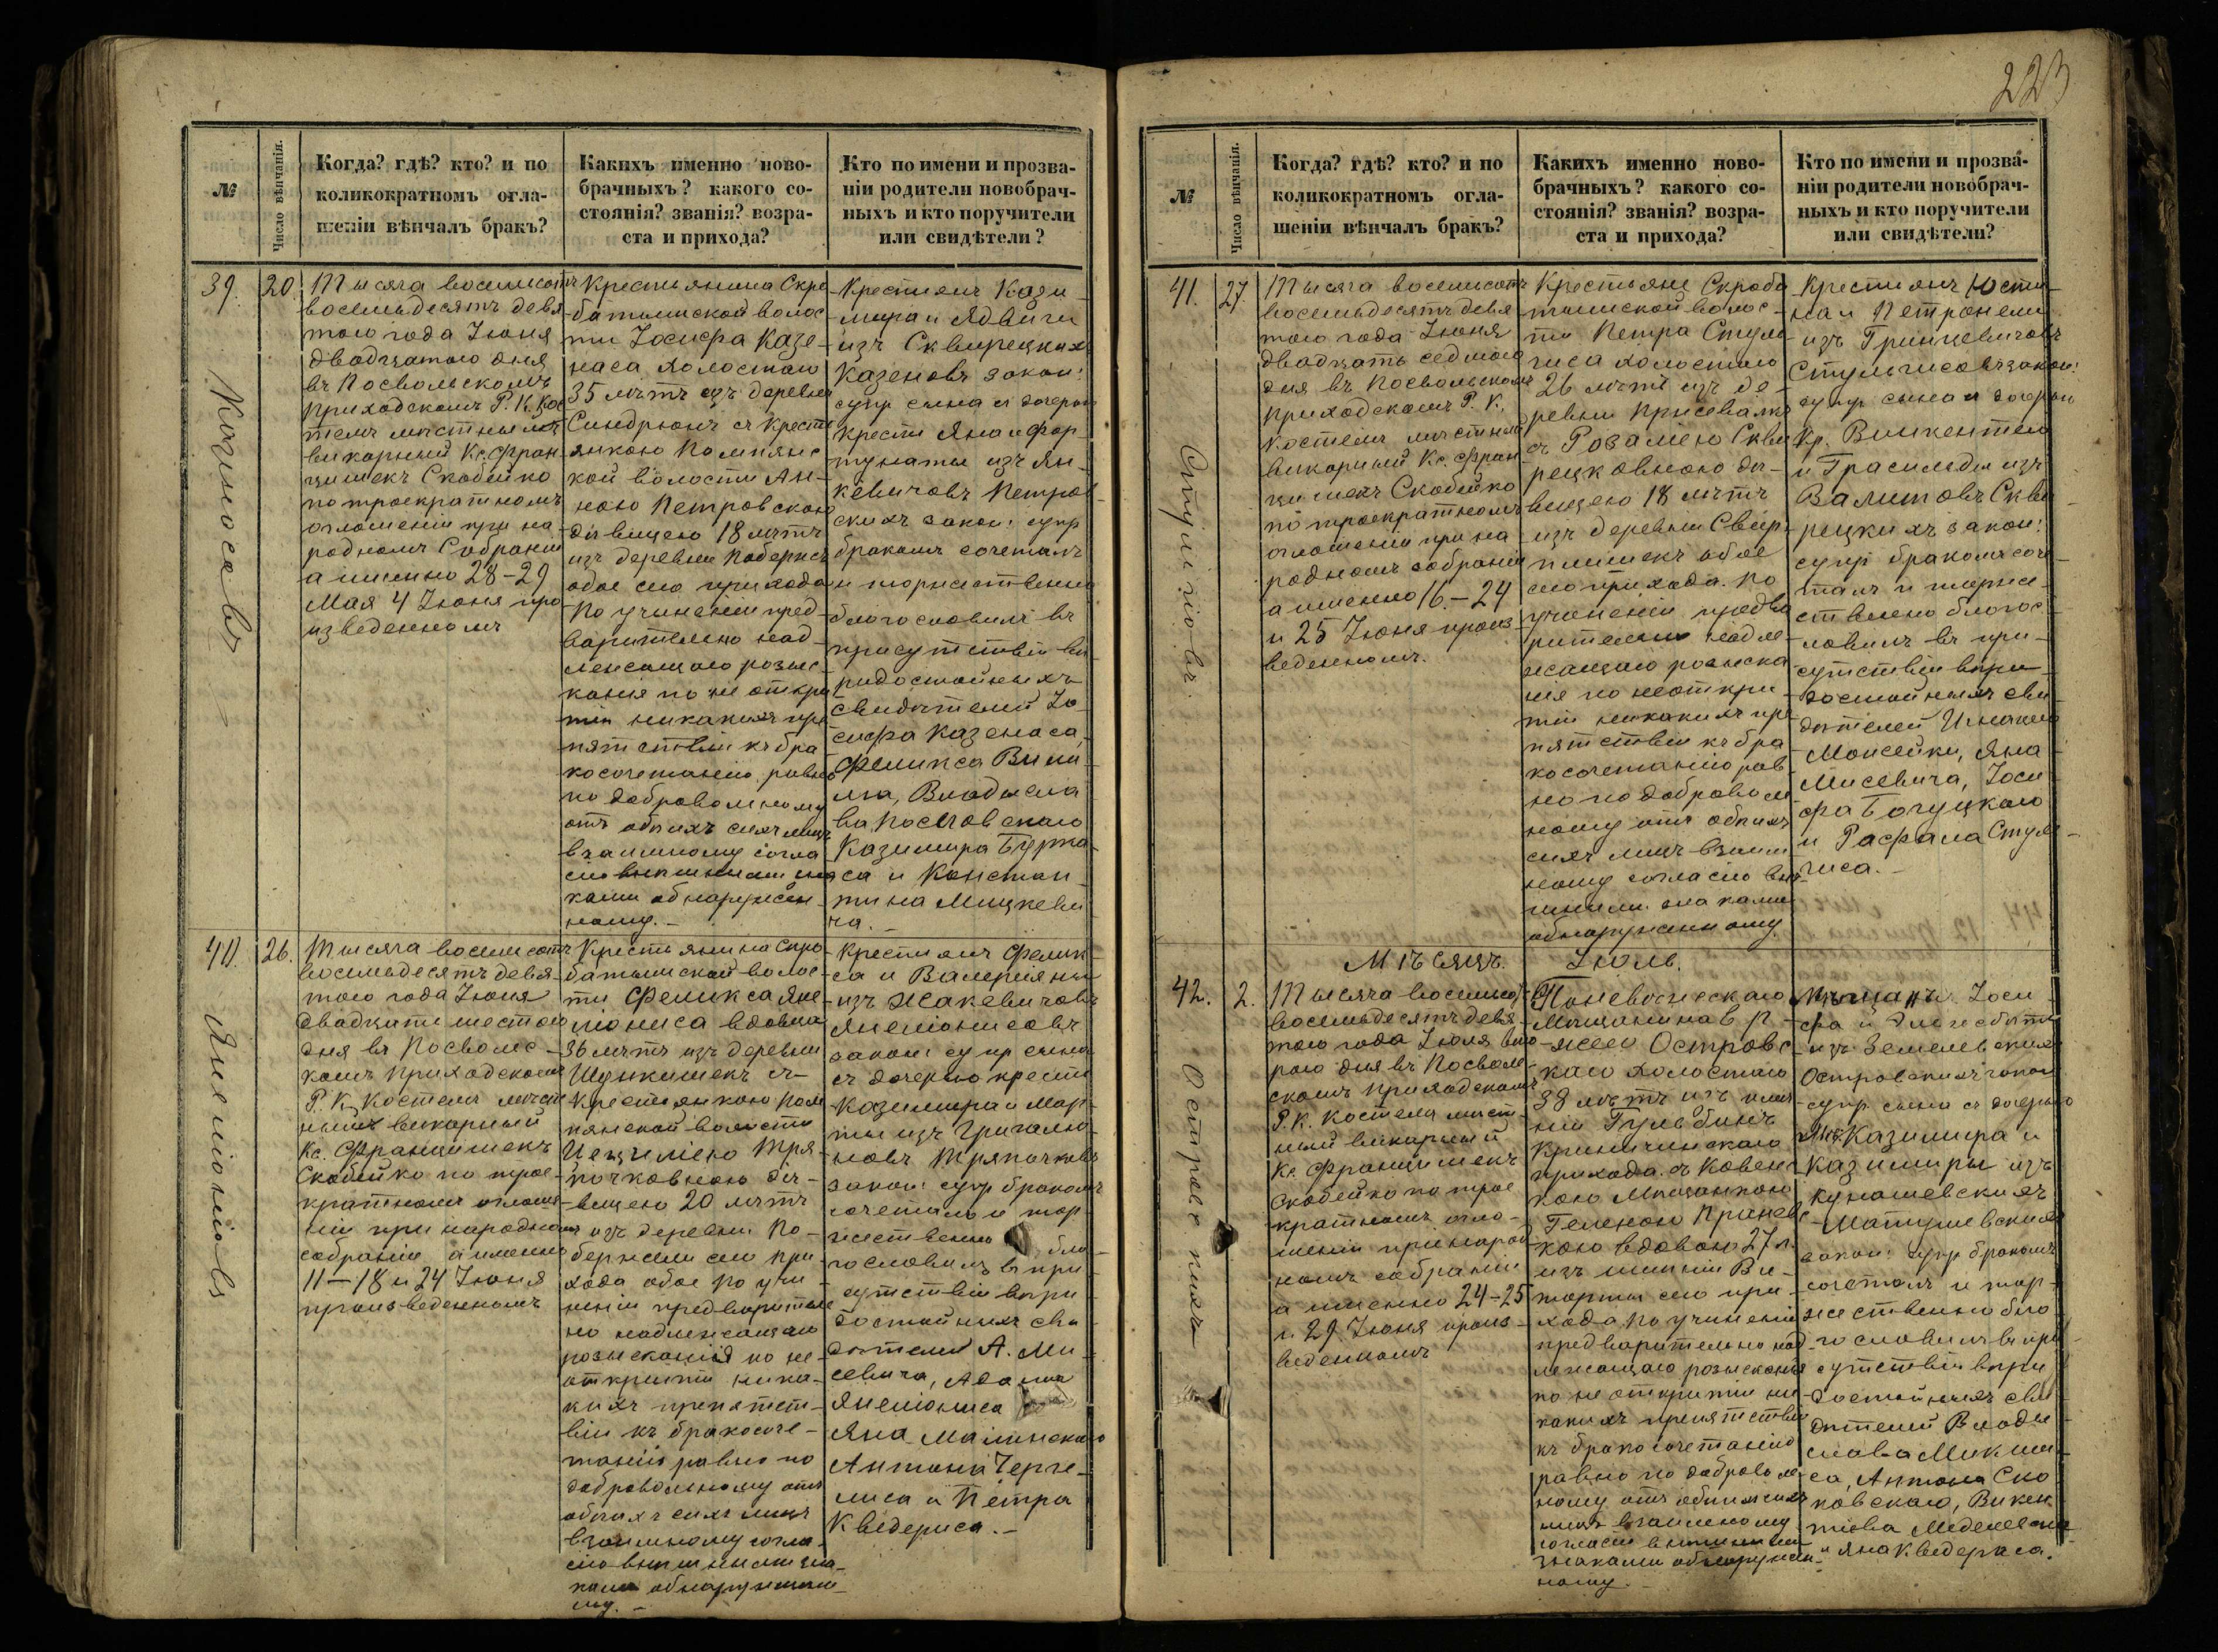 223
№
Число вѣнчанія.
Когда? гдѣ? кто? и по
коликократномъ огла-
шеніи вѣнчалъ бракъ?
Какихъ именно ново-
брачныхъ? какого со-
стоянія? званія? возра-
ста и прихода?
Кто по имени и прозва-
ніи родители новобрач-
ныхъ и кто поручители
или свидѣтели?
39.
20.
Тысяча восемсотъ
восемьдесятъ девя
таго года Іюня
двадцатаго дня
въ Посвольскомъ
приходскомъ Р. К. Кос
телѣ мѣстный
викарный Кс. Фран
цишекъ Скобейко
по троекратномъ
оглошеніи при на
родномъ Собраніи
а именно 28-29
Мая 4 Іюня про
изведенномъ
Крестьянина Скро
батишской волос
ти Іосифа Казе-
наса холостаго
35 лѣтъ изъ деревни
Синдрюнъ съ Кресть
янкою Помпянс
кой волости Ан-
ною Петровскою
дѣвицею 18 лѣтъ
изъ деревни
обое сего прихода
По учиненіи пред-
варительно над-
лежащаго розыс-
канія по не откры
тіи никакихъ пре
пятствій къ бра
косочетанію, равно
по добровольному
отъ обѣихъ сихъ лицъ
взаимному согла
сію внѣшними зна
ками обнаружен-
ному.-
Крестьянъ Кази-
мира и Ядвиги
изъ Сквирецкихъ
Казеновъ закон:
супр сына съ дочерью
Крестн Яна и Фор-
тунаты изъ Ян-
кевичовъ Петров-
скихъ закон: супр
бракомъ сочеталъ
и торжественно
благословилъ въ
присутствіи вѣ
ридостойныхъ
свидѣтелей Іо
сифа Казенаса,
Феликса
Владисла
ва
Казимира
и Констан-
тина Мицкеви
ча.-
40.
26.
Тысяча восемсотъ
восемьдесятъ девя-
таго года Іюня
двадцати шестаго
дня въ Посвольс-
комъ приходскомъ
Р. К. Костелѣ мѣст
ный викарный
Кс. Францишекъ
Скобейко по трое-
кратномъ оглоше-
ніи при народномъ
собраніи а именно
11-18 и 24 Іюня
произведенномъ
Янеліоніовъ
Крестьянина Скро
батишской волос-
ти Феликса Яне-
ліониса вдовца
36 лѣтъ изъ деревни
съ
Крестьянкою Пом
пянской волости
Цециліею Тря-
почковною дѣ-
вицею 20 лѣтъ
изъ деревни По-
сего при
хода обое по учи
неніи предваритель
но надлежащаго
розысканія по не-
открытіи ника-
кихъ препятст-
вій къ бракосоче-
танію равно по
добровольному отъ
обѣихъ сихъ лицъ
взаимному согла
сію внѣшними зна-
ками обнаруженно
му.-
Крестьянъ Феликс
са и Валеріяны
изъ Жакевичовъ
Янеліонисовъ
закон: супр сына
съ дочерью крестн
Казимира и Мар-
ты изъ Григалю-
новъ Тряпочковъ
закон: супр бракомъ
сочеталъ и тор-
жественно бла-
гословилъ въ при
сутствіи вѣри
достойныхъ сви
дѣтелей А. Ми-
севича, Адама
Янеліониса
Яна Малинскаго
Антона
и Петра
Кведериса.-
№
Число вѣнчанія.
Когда? гдѣ? кто? и по
коликократномъ огла-
шеніи вѣнчалъ бракъ?
Какихъ именно ново-
брачныхъ? какого со-
стоянія? званія? возра-
ста и прихода?
Кто по имени и прозва-
ніи родители новобрач-
ныхъ и кто поручители
или свидѣтели?
41.
27.
Тысяча восемсотъ
восемьдесятъ девя
таго года Іюня
двадцать седмаго
дня въ Посвольскомъ
приходскомъ Р. К.
Костелѣ мѣстный
викарный Кс. Фран
цишекъ Скобейко
по троекратномъ
оглошеніи при на
родномъ собраніи
а именно 16.-24
и 25 Іюня произ-
веденномъ.
Стульгіовъ.
Крестьяни Скроба
тишской волос-
ти Петра Стуль-
гиса холостаго
26 лѣтъ изъ де-
ревни
съ Розаліею Скви
рецковною дѣ-
вицею 18 лѣтъ
изъ деревни
обое
сего прихода. По
учиненіи предва
рительно надле-
жащаго розыска
нія по неоткры-
тіи никакихъ пре
пятствій къ бра
косочетанію рав-
но по доброволь
ному отъ обѣихъ
сихъ лицъ взаим
ному согласію внѣ
шними знаками
обнаруженному.
Крестьянъ Юсти-
на и Петронели
изъ Гринцевичовъ
Стульгисовъ закон:
супр сына съ дочерью
Кр. Викентія
и Грасильды изъ
Скви-
рецкихъ закон:
супр бракомъ соче
талъ и торже-
ственно благос-
ловилъ въ при-
сутствіи вѣри
достойныхъ сви
дѣтелей Игнація
Моисейки, Яна
Мисевича, Іоси
фа Богуцкаго
и Рафала Стуль-
гиса.-
Мѣсяцъ. Іюль.
42.
2.
Тысяча восемьсотъ
восемьдесятъ девя
таго года Іюля вто
раго дня въ Посволь
скомъ приходскомъ
Р. К. Костелѣ мѣст
ный викарный
Кс. Францишекъ
Скобейко по трое
кратномъ огло-
шеніи при народ
номъ собраніи
а именно 24-25
и 29 Іюня произ-
веденномъ
Поневежскаго
Мѣщанина
Островс
каго холостаго
38 лѣтъ изъ имѣ
нія Гульбинъ
Криничинскаго
прихода. съ Ковен
скою Мѣщанкою
Геленою
вдовою 27 л.
изъ имѣнія
сего при-
хода, по учиненіи
предварительно над
лежащаго розысканія
по не открытіи ни
какихъ препятствій
къ бракосочетанію
равно по доброволь
ному отъ обѣихъ сихъ
лицъ взаимному
согласію внѣшними
знаками обнаружен-
ному.-
Мѣщанъ Іоси
фа и Эльжбеты
изъ Земельскихъ
Островскихъ закон
супр сына съ дочерью
Казимира и
Казимиры изъ
Кунашевскихъ
Матушевскихъ
закон: супр бракомъ
сочеталъ и тор-
жественно бла-
гословилъ въ при
сутствіи вѣри
достойныхъ сви
дѣтелей Влади
слава
Антона
Викен
тія
и Яна Кведераса.